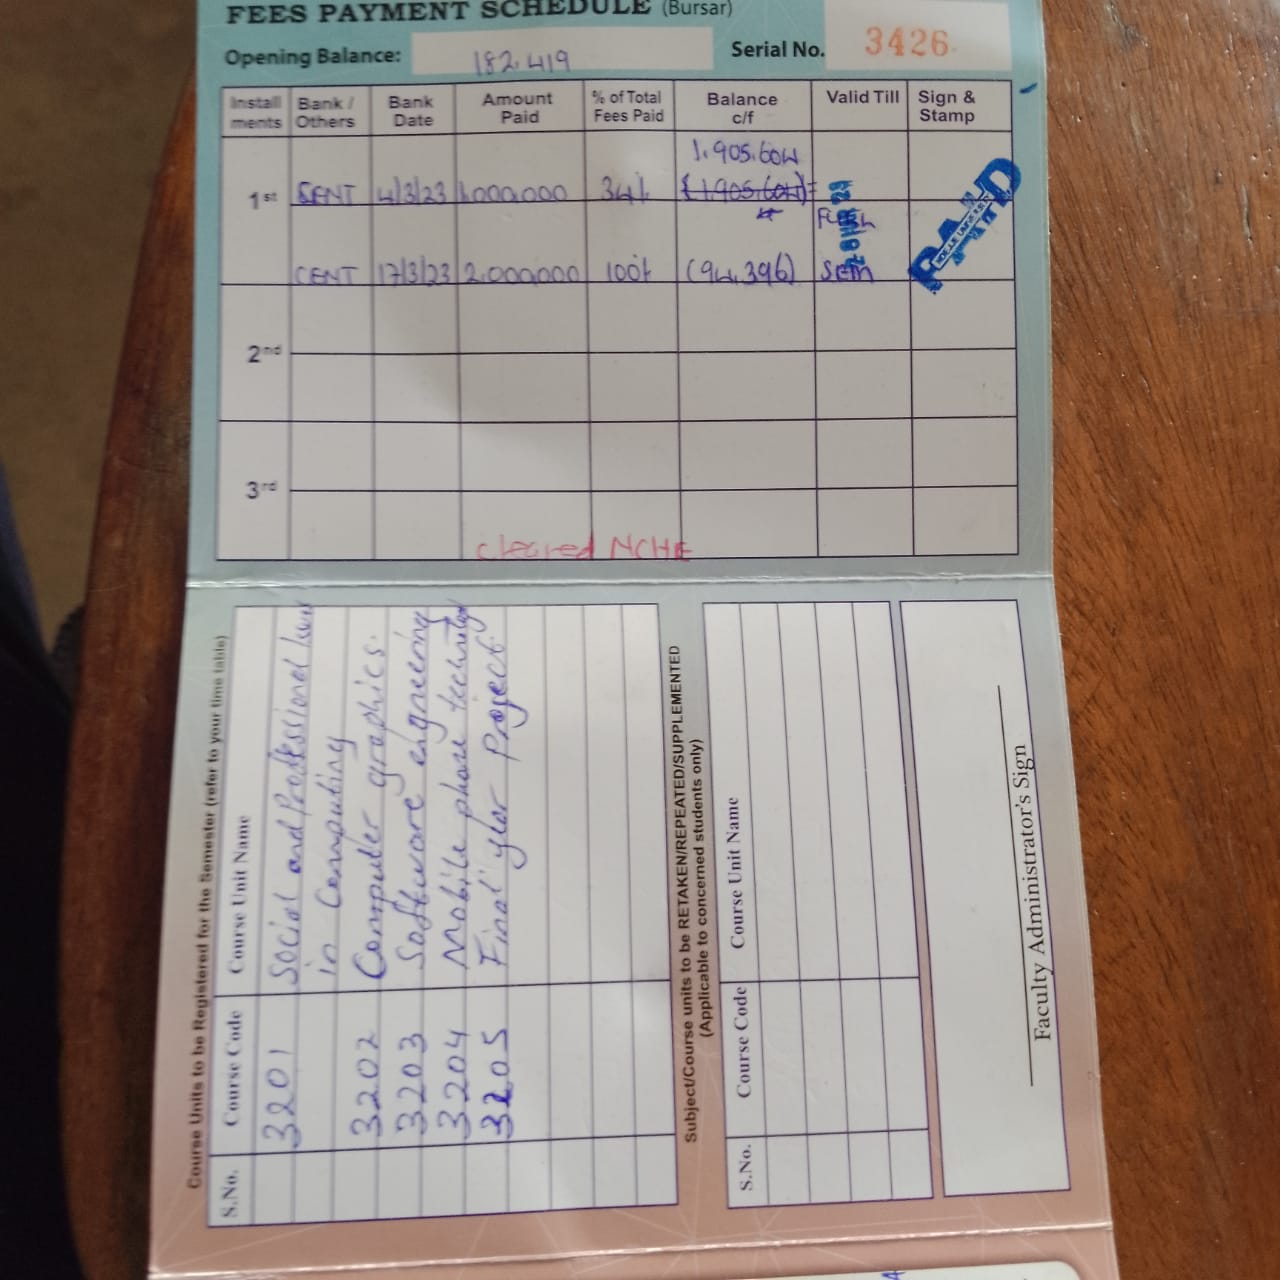 FEES PAYMENT SCHEDULE (Bursar)
Opening Balance: 182,419 Serial No. 3426
Install ments Bank / Others Bank Date Amount Paid % of Total Fees Paid Balance c/f Valid Till Sign & Stamp
1.905.604
1st CENT 4/3/23 1,000,000 34% (1.905.604)
PAID
CENT 17/3/23 2,000,000 100% (94,396) Sem
2nd
3rd
Cleared NCHE
Course Units to be Registered for the Semester (refer to your time table)
S.No. Course Code Course Unit Name
3201 Social and Professional
in Computing
3202 Computer graphics.
3203 Software engneering
3204 Mobile phone
3205 Final year Project
Subject/Course units to be RETAKEN/REPEATED/SUPPLEMENTED
(Applicable to concerned students only)
S.No. Course Code Course Unit Name
Faculty Administrator's Sign